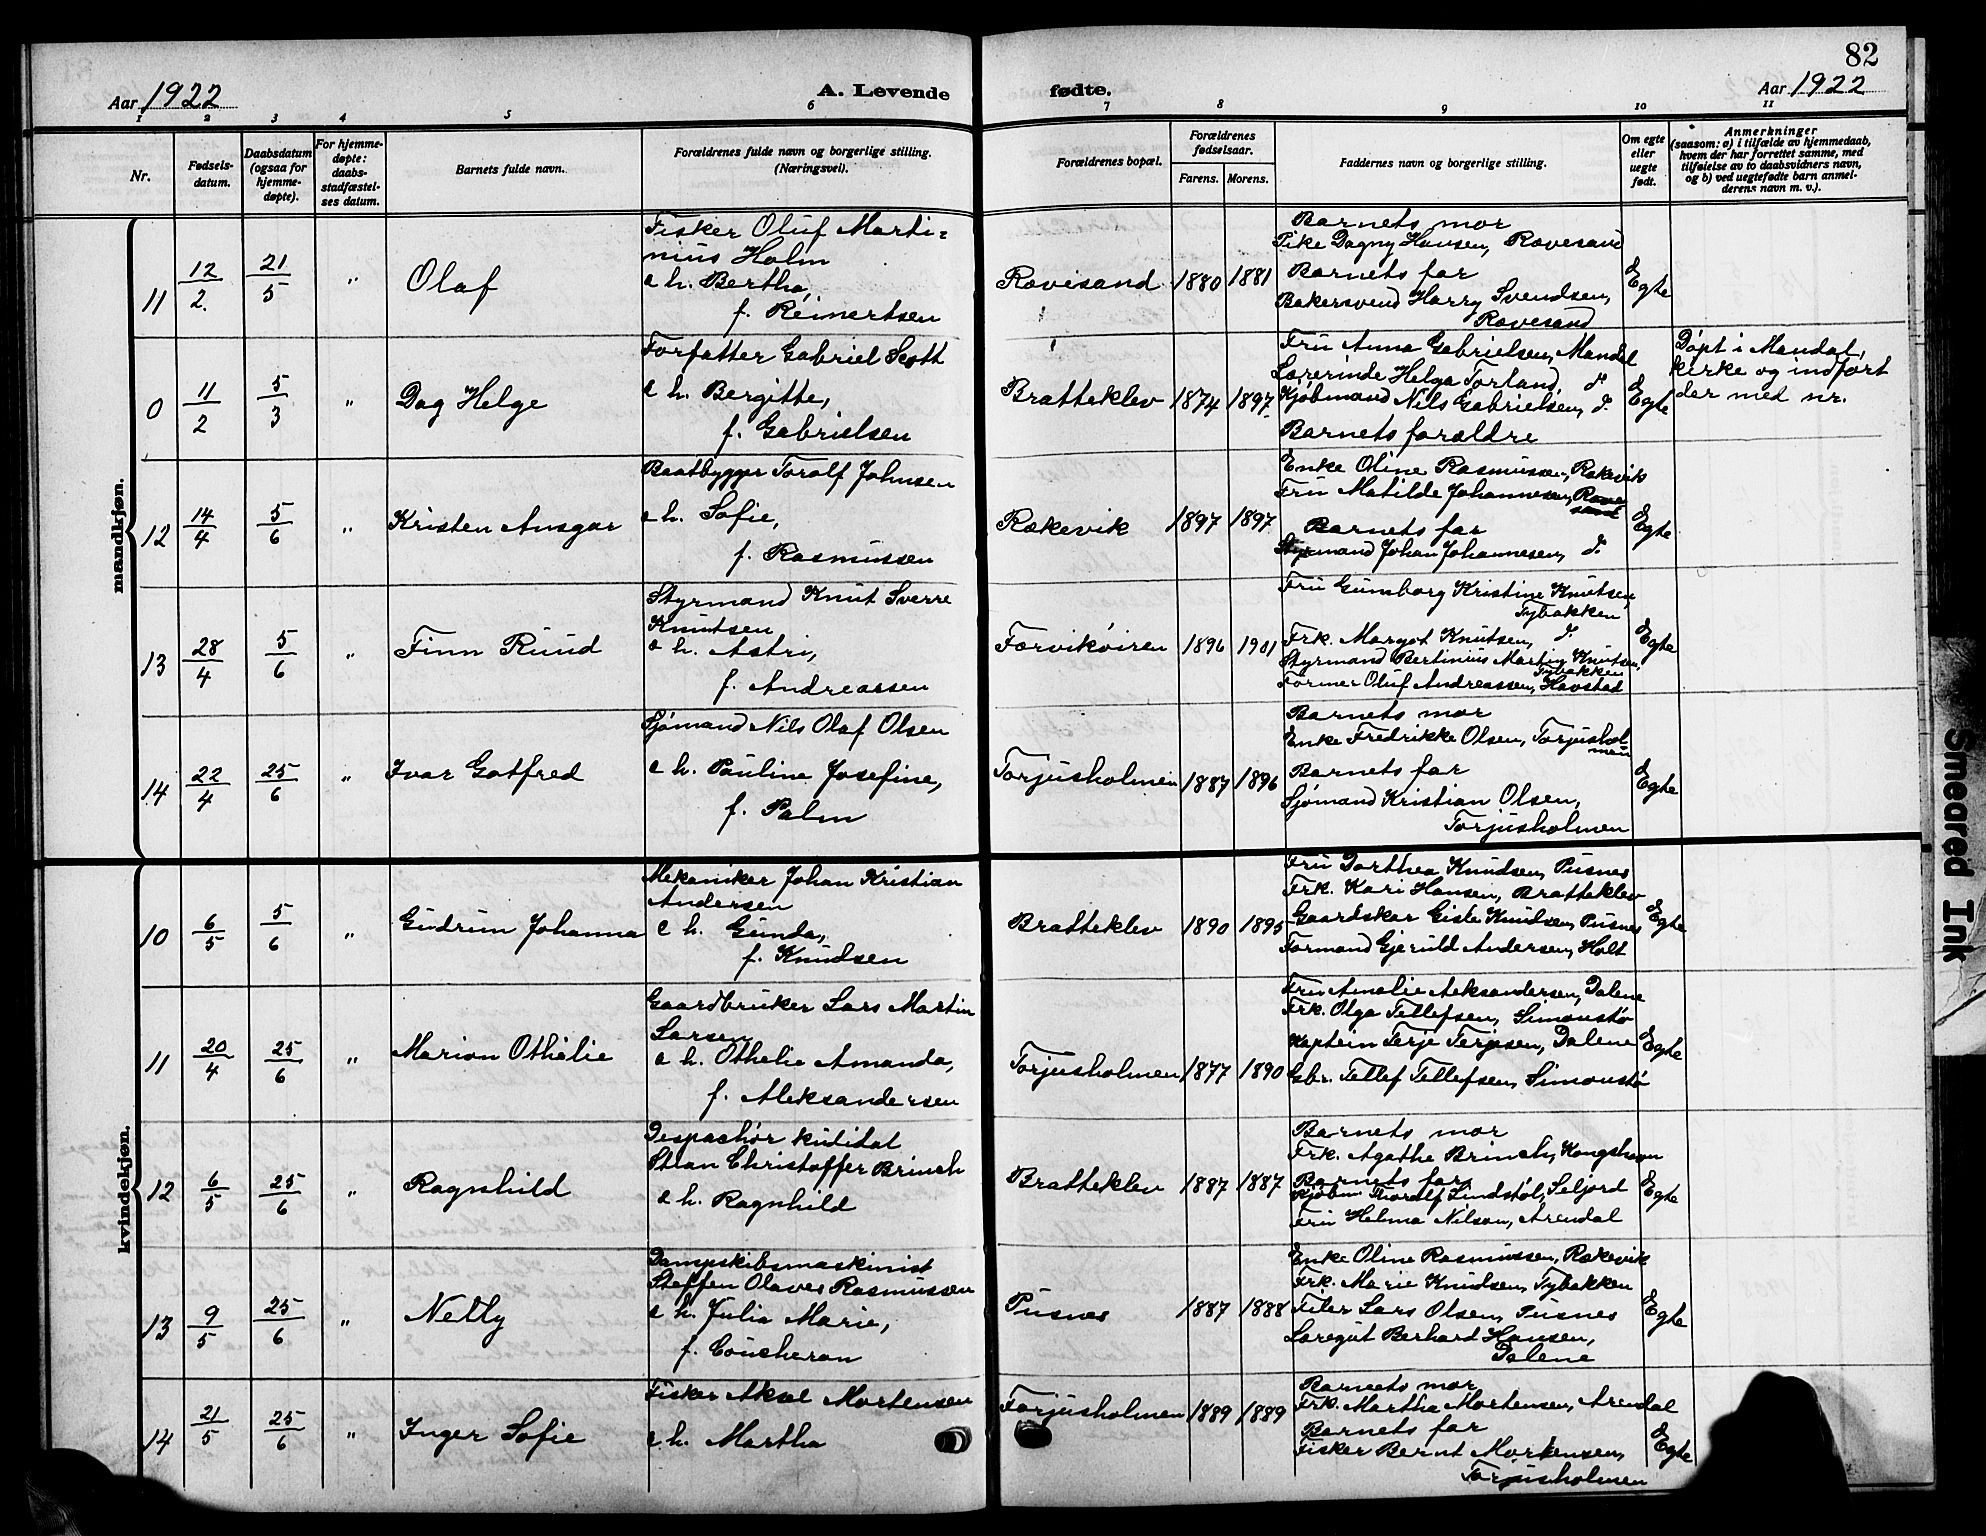 82
Aar 1922
A. Levende fødte.
Aar 1922
1 2 3 4 5 6 7 8 9 10 11
Nr.
Fødsels-
datum.
Daabsdatum
(ogsaa for
hjemme-
døpte).
For hjemme-
døpte:
daabs-
stadfæstel-
ses datum.
Barnets fulde navn.
Forældrenes fulde navn og borgerlige stilling.
(Næringsvei).
Forældrenes bopæl.
Forældrenes
fødselsaar.
Farens. Morens.
Faddernes navn og borgerlige stilling.
Om egte
eller
uegte
født.
Anmerkninger
(saasom: a) i tilfælde av hjemmedaab,
hvem der har forrettet samme, med
tilføielse av to daabsvidners navn,
og b) ved uegtefødte barn anmel-
derens navn m. v.).
mandkjøn.
11 12/2. 21/5 " Olaf
Fisker Oluf Marti=
nius Holm
e h. Bertha,
f. Reinertsen
Rævesand 1880 1881
Barnets mor
Pike Dagny Hansen, Rævesand
Barnets far
Bakersvend Harry Svendsen,
Rævesand
Egte
0 11/2 5/3 " Dag Helge
Forfatter Gabriel Scott
e h. Bergitte,
f. Gabrielsen
Bratteklev 1874 1897
Fru Anna Gabrielsen, Mandal
Lærerinde Helga Torland, d.
Kjøbmand Nils Gabrielsen, d.
Barnets forældre
Egte
Døpt i Mandal,
kirke og indført
der med nr.
12 14/4 5/6 " Kristen Ansgar
Baatbygger Toralf Johnsen
e h. Sofie,
f. Rasmussen
Rækevik 1897 1897
Enke Oline Rasmussen, Rækevik
Fru Matilde Johannesen, Ræve
sand
Barnets far
Styrmand Johan Johannesen, d.
Egte
13 28/4 5/6 " Finn Ruud
Styrmand Knut Sverre
Knutsen
e h. Astri,
f. Andreassen
Færvikveien 1896 1901
Fru Gunborg Kristine Knutsen,
Tybakken
Frk. Margot Knutsen, d.
Styrmand Bertinius Martin Knutsen,
Tybakken
Former Oluf Andreassen, Havstad
Egte
14 22/4 25/6 " Ivar Gotfred
Sjømand Nils Olaf Olsen
e h. Pauline Josefine,
f. Palm
Torjusholmen 1887 1896
Barnets mor
Enke Fredrikke Olsen, Torjushol
men
Barnets far
Sjømand Kristian Olsen,
Torjusholmen
Egte
kvindekjøn.
10 6/5 5/6 " Gudrun Johanna
Mekaniker Johan Kristian
Andersen
e h. Gunda,
f. Knudsen
Bratteklev 1890 1895
Fru Dorthea Knudsen, Pusnes
Frk. Kari Hansen, Bratteklev
Gaardskar Gisle Knudsen, Pusnes
Formand Gjeruld Andersen, Holt
Egte
11 20/4 25/6 " Marion Othelie
Gaardbruker Lars Martin
Larsen
e h. Othelie Amanda,
f. Aleksandersen
Torjusholmen 1877 1890
Fru Amalie Aeksandersen, Dalene
Frk. Olga Tellefsen, Simonstø
Kaptein Terje Terjesen, Dalene
Gbr. Tellef Tellefsen, Simonstø
Egte
12 6/5 25/6 " Ragnhild
Despachør kudidat
Stian Christoffer Brinch
e h. Ragnhild
Bratteklev 1887 1887
Barnets mor
Frk. Agathe Brinch, Kongshavn
Barnets far
Kjøbm Thoralf Lindstøl, Seljord
Fru Helma Nilson, Arendal
Egte
13 9/5 25/6 " Nelly
Dampskibsmaskinist
Steffen Olaves Rasmussen
e h. Julia Marie,
f. Coucheron
Pusnes 1887 1888
Enke Oline Rasmussen, Rækevik
Frk. Marie Knudsen, Tybakken
Filer Lars Olsen, Pusnes
Læregut Berhard Hansen,
Dalene
Egte
14 21/5 25/6 " Inger Sofie
Fisker Aksel Mortensen
e h. Martha
Torjusholmen 1889 1889
Barneets mor
Frk. Martha Mortensen, Arendal
Barnets far
Fisker Bernt Mortensen,
Torjusholmen
Egte
Smeared Ink